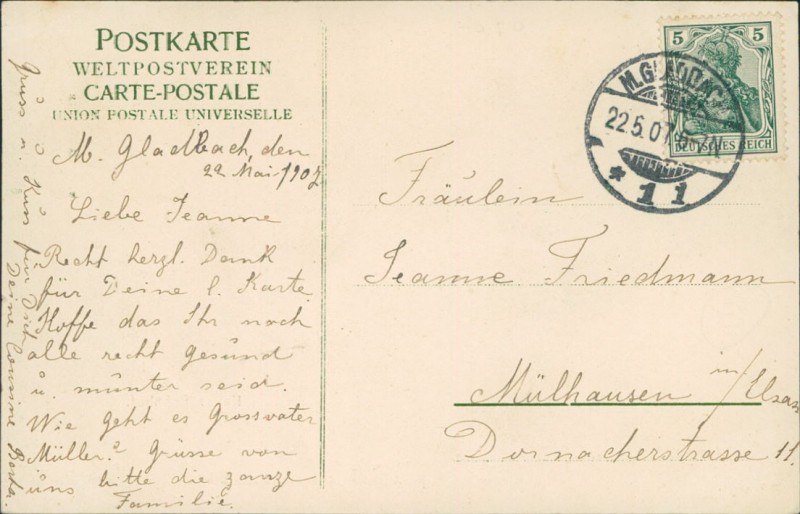 POSTKARTE
WELTPOSTVEREIN
CARTE-POSTALE
UNION POSTALE UNIVERSELLE
M. Gladbach, den
22 Mai 1907
Liebe Jeanne
Recht herzl. Dank
für Deine l. Karte
Hoffe das Ihr noch
alle recht gesund
u. munter seid.
Wie geht es Grossvater
Müller? Grüsse von
uns bitte die ganze
Familie.
Gruss u. Kuss für Dich
Deine Cousine
5 5
DEUTSCHES REICH
M.GLADBACH
22.5.07
* 11
Fräulein
Jeanne Friedmann
Mülhausen in/Elsass
Dornacherstrasse 11.